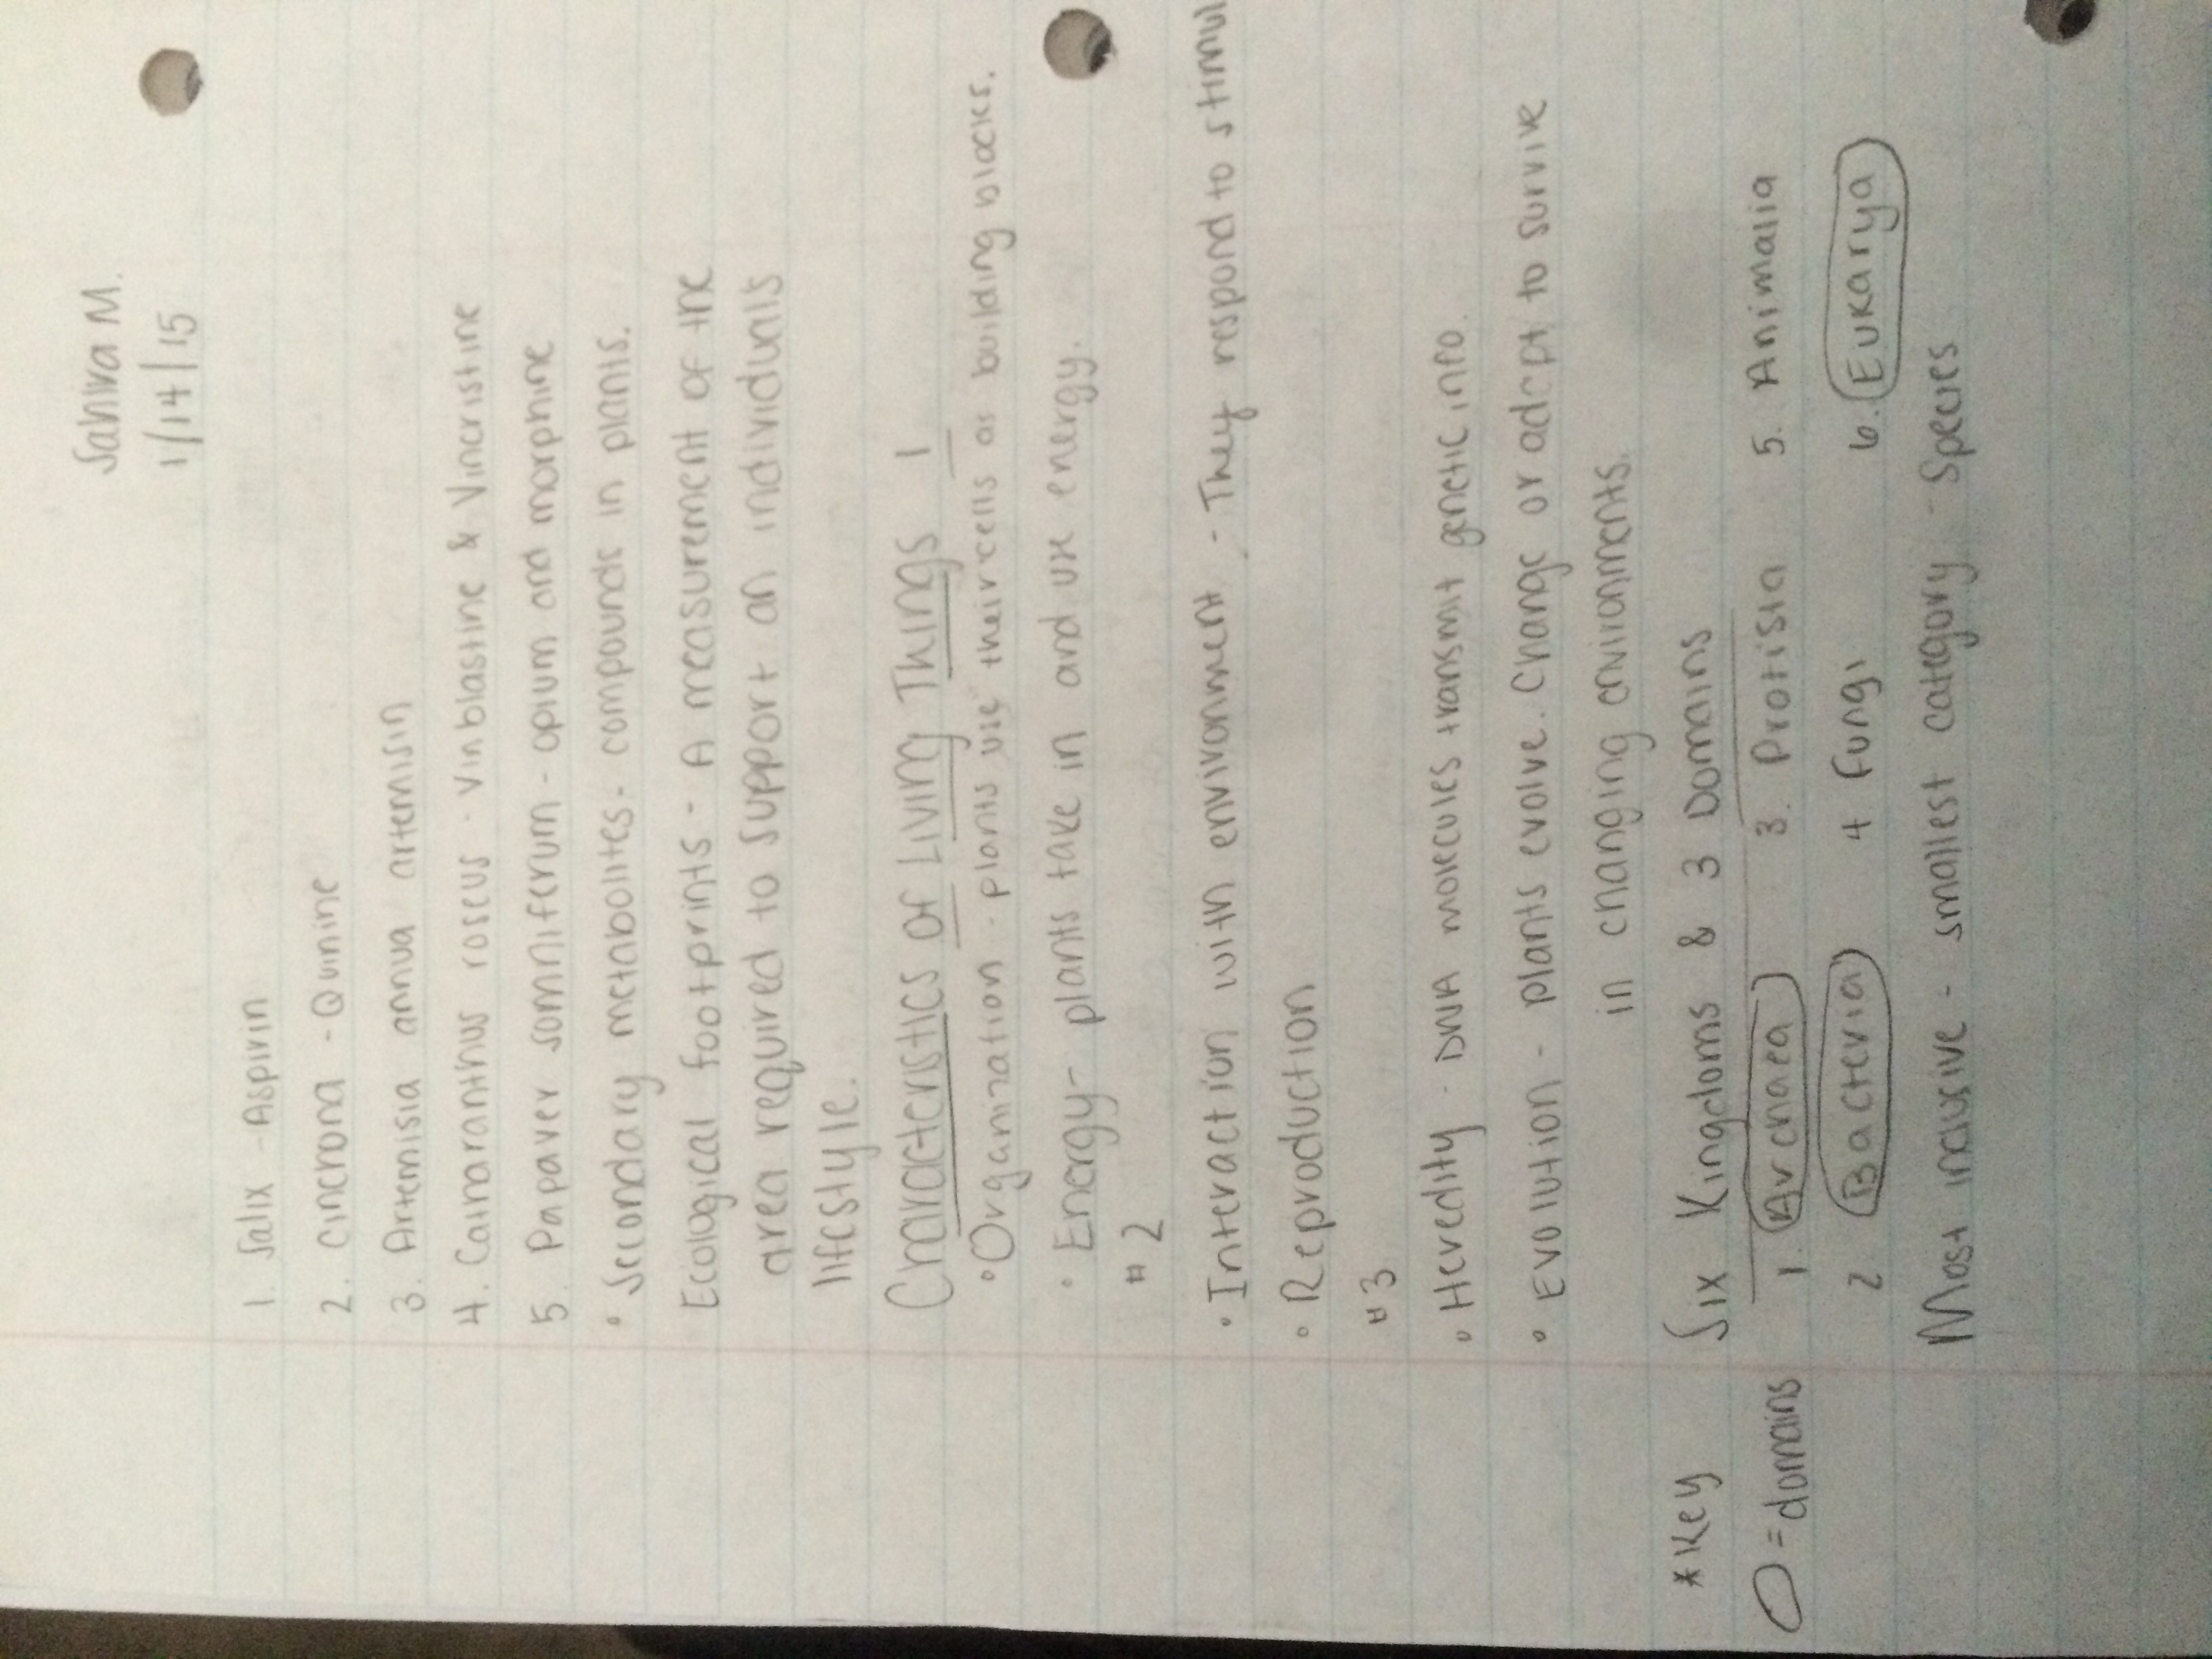 Sahira M.
1/14/15
1. Salix - Aspirin
2. Cinchona - Quinine
3. Artemisia annua artemisin
4. Catharanthus roseus - vinblastine & Vincristine
5. Papaver somniferum - opium and morphine
• Secondary metabolites - compounds in plants.
Ecological footprints - A measurement of the
area required to support an individuals
lifestyle.
Characteristics of Living Things 1
• Organization - plants use their cells as building blocks.
• Energy - plants take in and use energy.
#2
• Interaction with environment - They respond to stimul
• Reproduction
#3
• Heredity - DNA molecules transmit genetic info.
• Evolution - plants evolve. Change or adapt to survive
in changing environments.
*Key Six Kingdoms & 3 Domains
O = domains 1. Archaea 3. Protista 5. Animalia
2 Bacteria 4 Fungi 6. Eukarya
Most inclusive - smallest category - Species